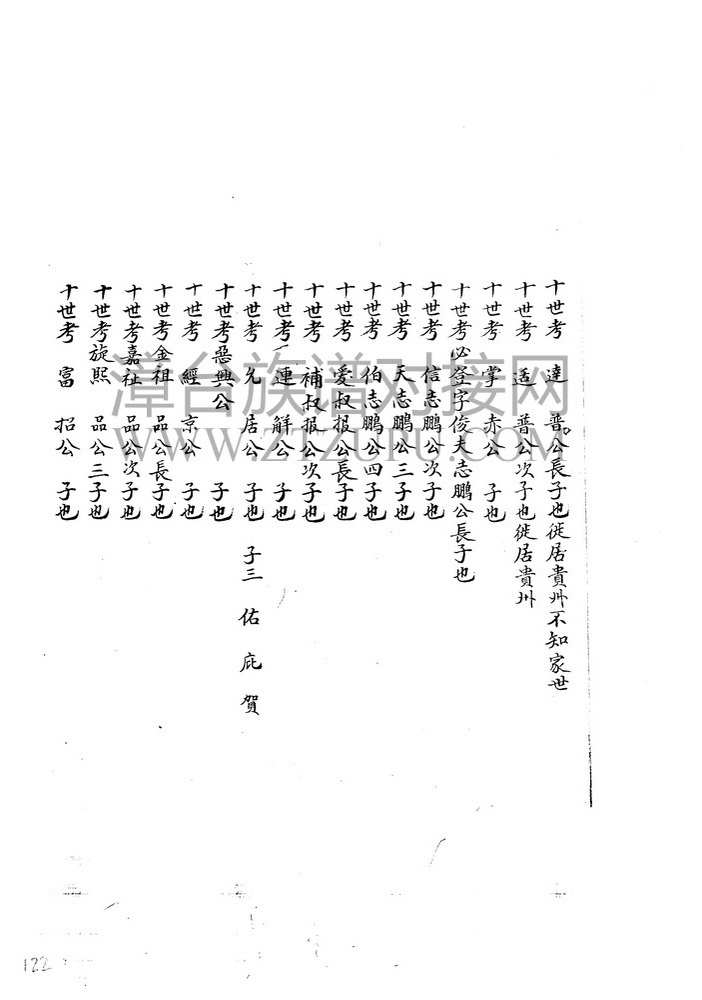 十世考 達 普公長子也徙居貴州不知家世
十世考 适 普公次子也徙居貴州
十世考 掌 赤公 子也
十世考 必登字俊夫志鵬公長子也
十世考 信志鵬公次子也
十世考 天志鵬公三子也
十世考 伯志鵬公四子也
十世考 愛叔报公長子也
十世考 補叔报公次子也
十世考 連 解公 子也
十世考 允 居公 子也 子三 佑 庇 賀
十世考 興公 子也
十世考 經 京公 子也
十世考 金祖 品公長子也
十世考 嘉祉 品公次子也
十世考 旋熙 品公三子也
十世考 富 招公 子也
漳台族谱对接网
WWW.ZTZUPU.COM
122